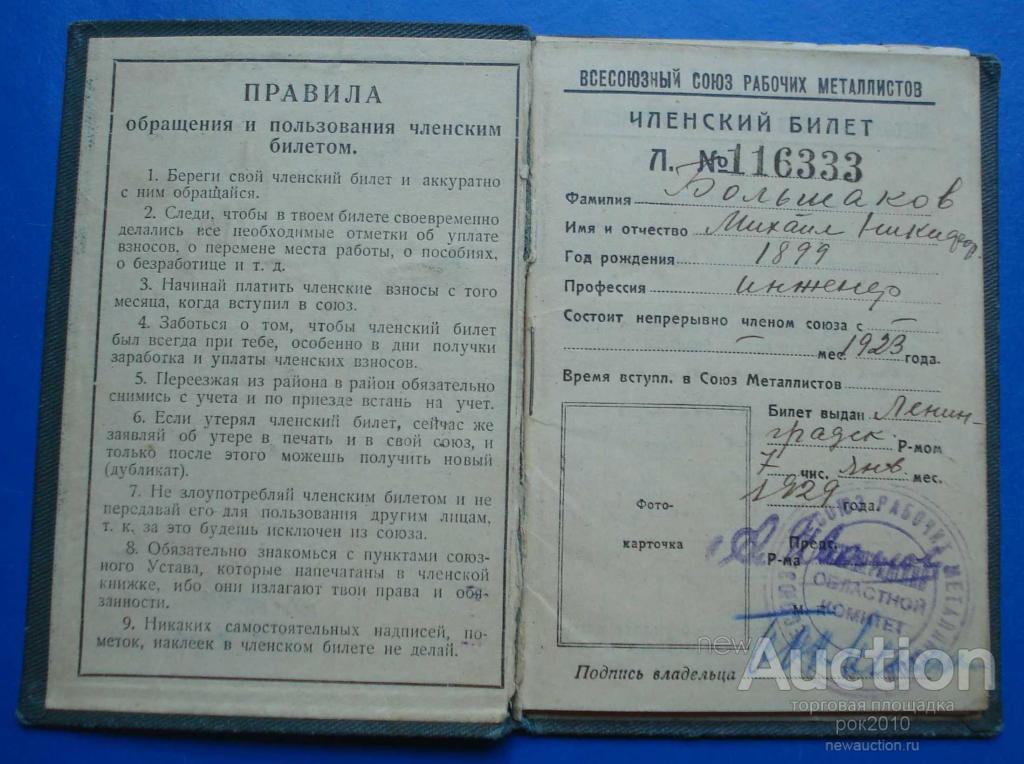 ПРАВИЛА
обращения и пользования членским
билетом.
1. Береги свой членский билет и аккуратно
с ним обращайся.
2. Следи, чтобы в твоем билете своевременно
делались все необходимые отметки об уплате
взносов, о перемене места работы, о пособиях,
о безработице и т. д.
3. Начинай платить членские взносы с того
месяца, когда вступил в союз.
4. Заботься о том, чтобы членский билет
был всегда при тебе, особенно в дни получки
заработка и уплаты членских взносов.
5. Переезжая из района в район обязательно
снимись с учета и по приезде встань на учет.
6. Если утерял членский билет, сейчас же
заявляй об утере в печать и в свой союз, и
только после этого можешь получить новый
(дубликат).
7. Не злоупотребляй членским билетом и не
передавай его для пользования другим лицам,
т. к. за это будешь исключен из союза.
8. Обязательно знакомься с пунктами союз-
ного Устава, которые напечатаны в членской
книжке, ибо они излагают твои права и обя-
занности.
9. Никаких самостоятельных надписей, по-
меток, наклеек в членском билете не делай.
ВСЕСОЮЗНЫЙ СОЮЗ РАБОЧИХ МЕТАЛЛИСТОВ
ЧЛЕНСКИЙ БИЛЕТ
Л. №116333
Фамилия Большаков
Имя и отчество Михаил Никифор.
Год рождения 1899
Профессия инженер
Состоит непрерывно членом союза с —
— мес. 1923 года.
Время вступл. в Союз Металлистов
Билет выдан Ленин-
градск. Р-мом
7 чис. янв. мес.
1929 года.
Фото-
карточка
Предс.
Р-ма
М. П.
СОЮЗ РАБОЧИХ МЕТАЛЛИСТОВ
ОБЛАСТНОЙ
КОМИТЕТ
Подпись владельца
newAuction
торговая площадка
рок2010
newauction.ru